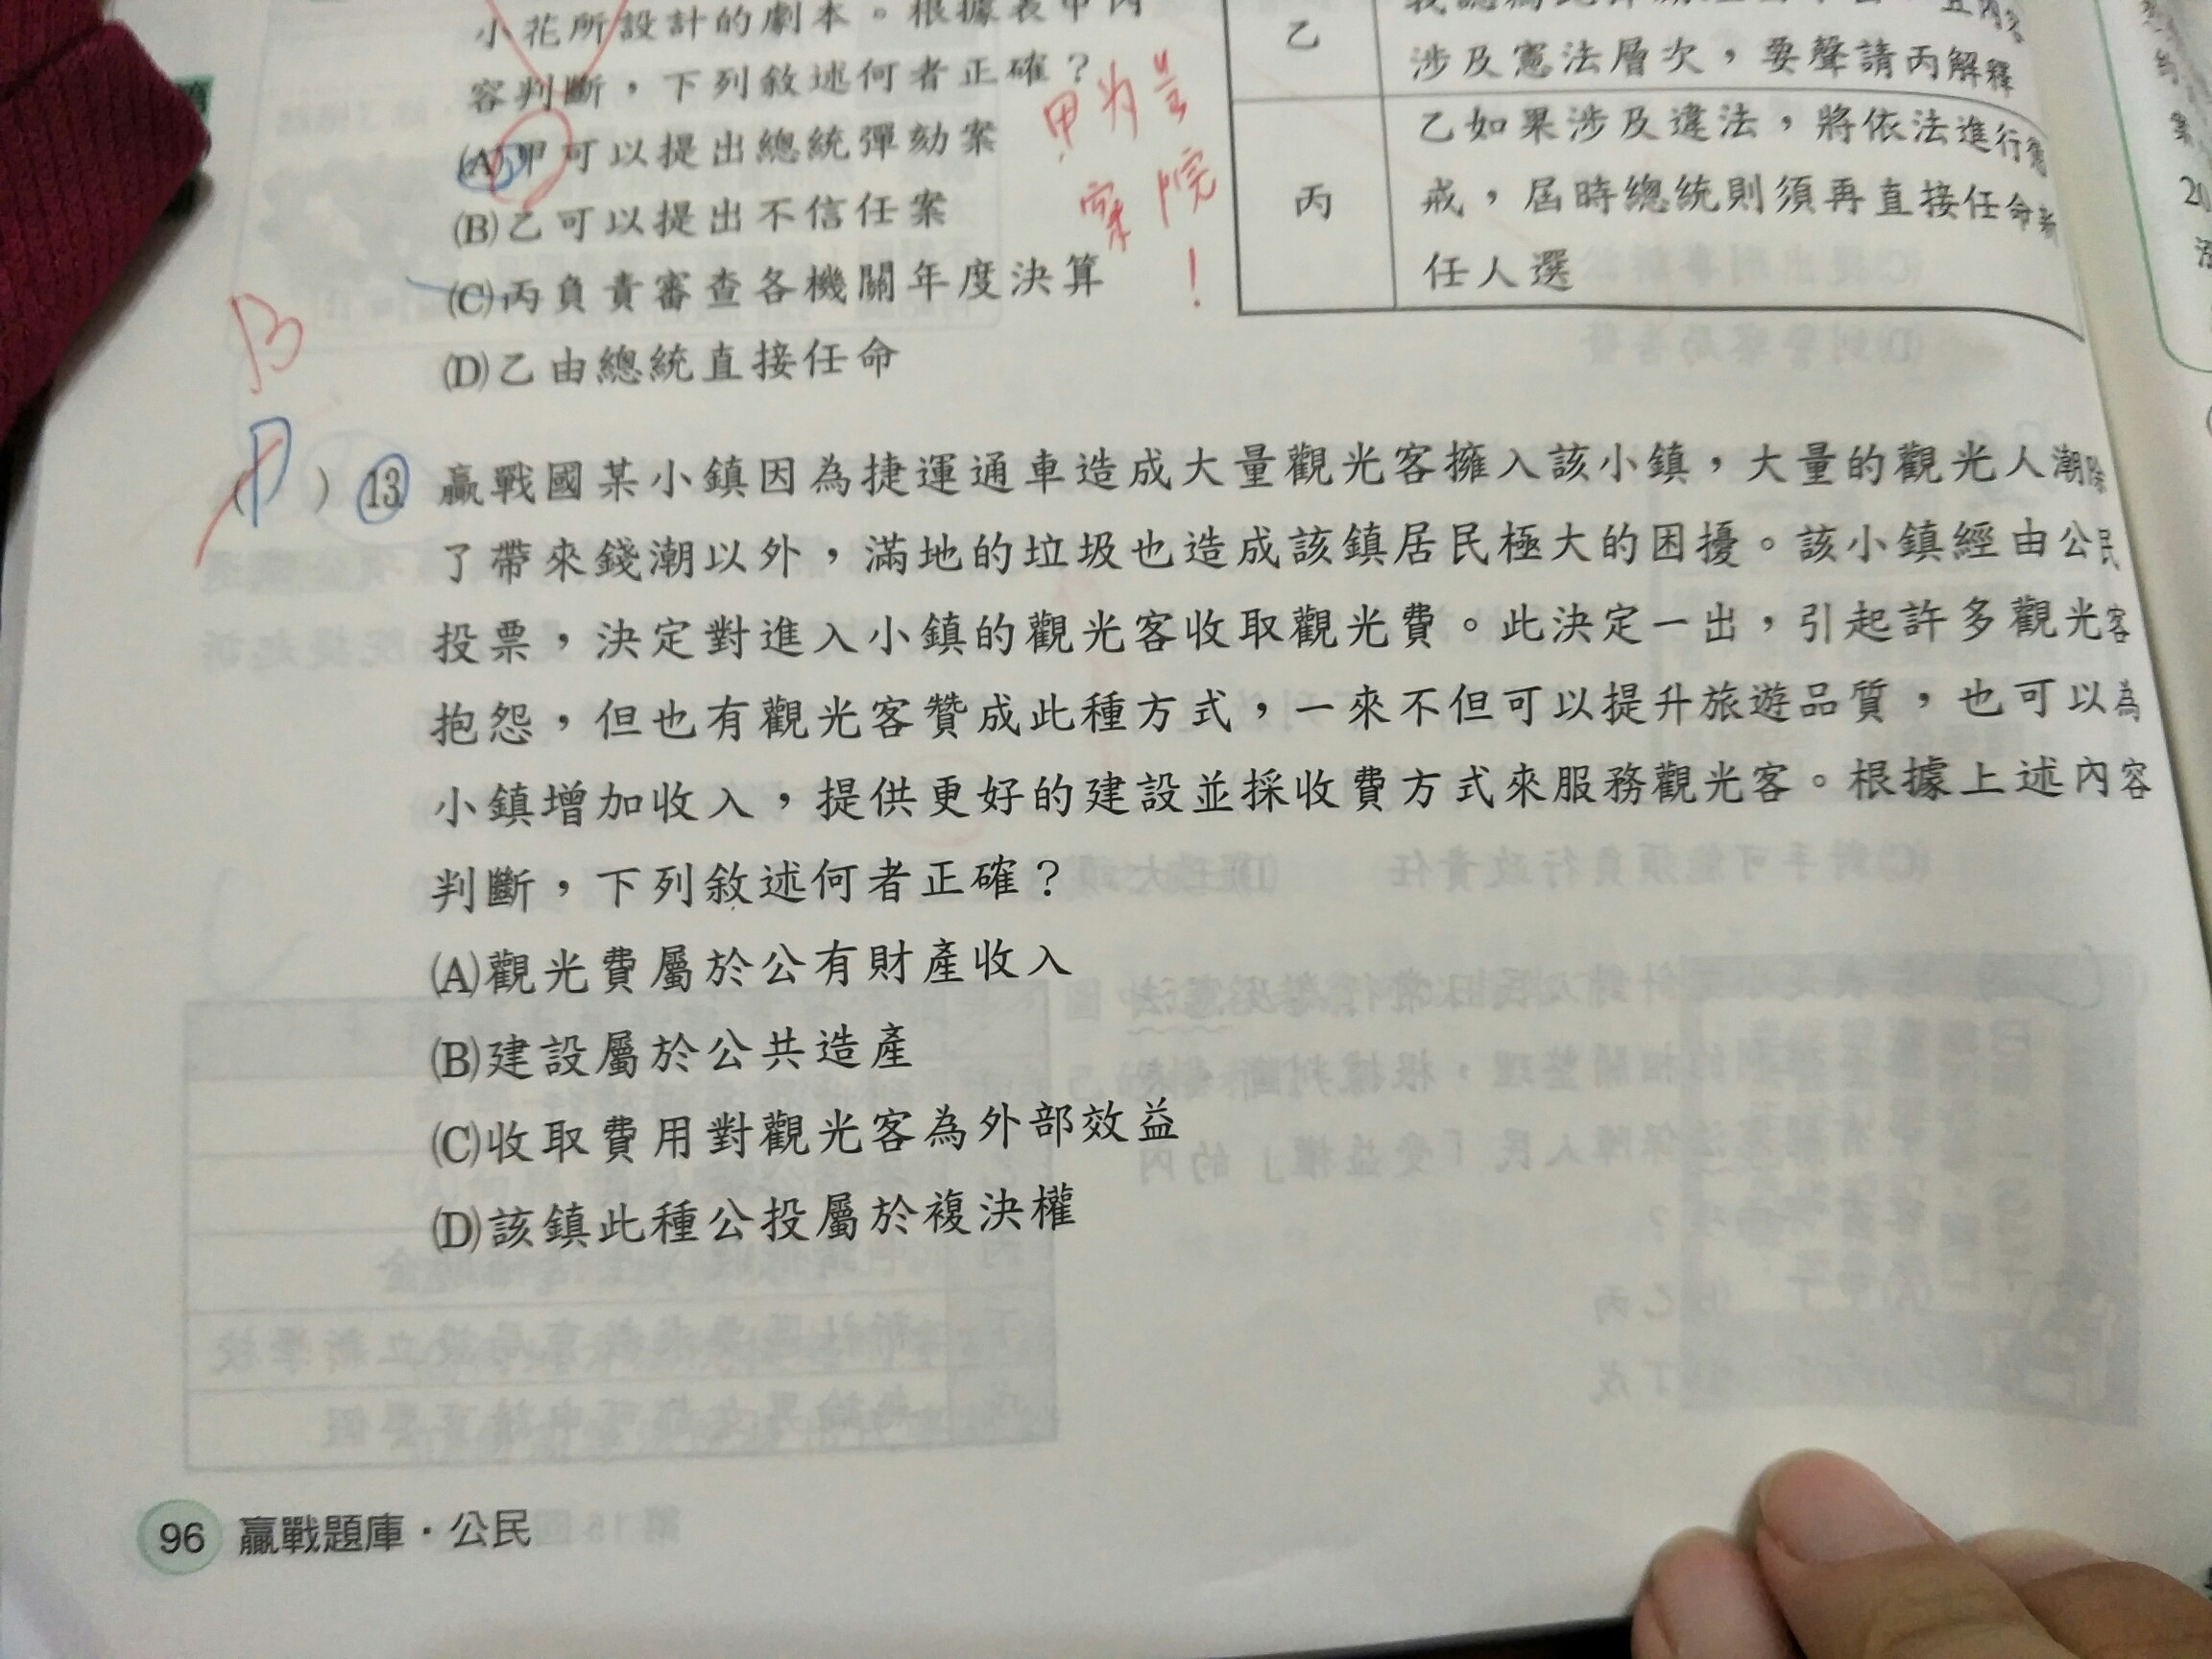 小花所設計的劇本。根據表中內
容判斷，下列敘述何者正確？
(A)甲可以提出總統彈劾案
(B)乙可以提出不信任案
(C)丙負責審查各機關年度決算
(D)乙由總統直接任命
甲为
院
!
乙
涉及憲法層次，要聲請丙解釋
丙
乙如果涉及違法，將依法進行懲
戒，屆時總統則須再直接任命新
任人選
B
D
( ) 13. 贏戰國某小鎮因為捷運通車造成大量觀光客擁入該小鎮，大量的觀光人潮除
了帶來錢潮以外，滿地的垃圾也造成該鎮居民極大的困擾。該小鎮經由公民
投票，決定對進入小鎮的觀光客收取觀光費。此決定一出，引起許多觀光客
抱怨，但也有觀光客贊成此種方式，一來不但可以提升旅遊品質，也可以為
小鎮增加收入，提供更好的建設並採收費方式來服務觀光客。根據上述內容
判斷，下列敘述何者正確？
(A)觀光費屬於公有財產收入
(B)建設屬於公共造產
(C)收取費用對觀光客為外部效益
(D)該鎮此種公投屬於複決權
96 贏戰題庫·公民
20